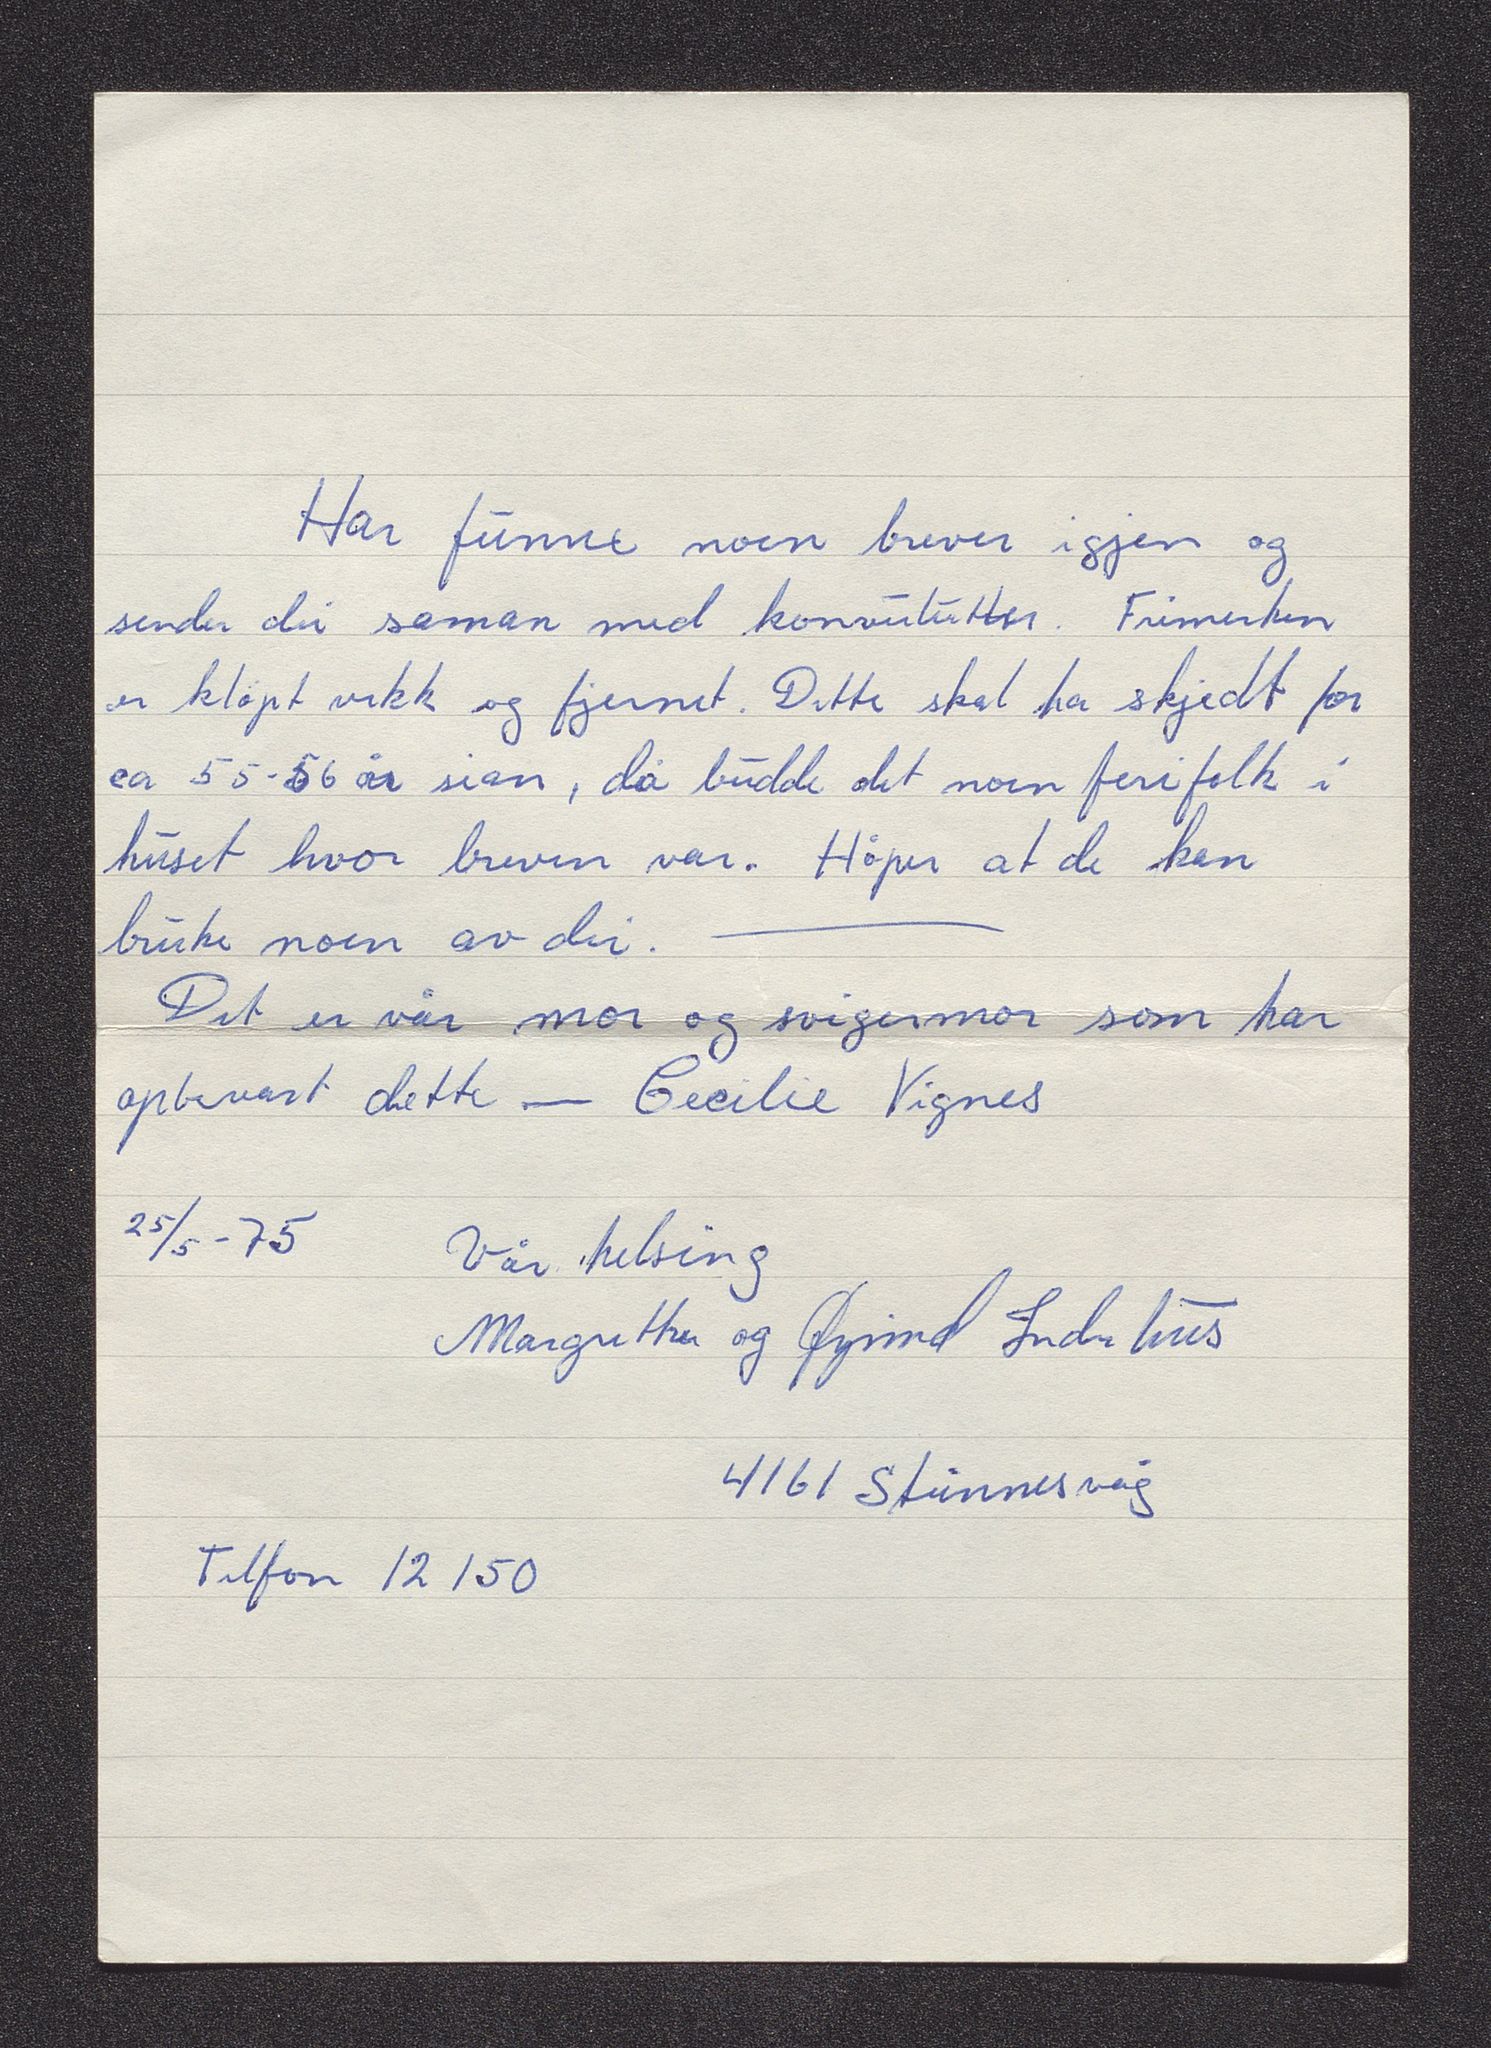 Har funne noen brever igjen og
sender dei saman med konvulutter. Frimerken
er klöpt vekk og fjernet. Dette skal ha skjedt for
ca 55-56 år sian, då budde det noen ferifolk i
huset hvor breven var. Håper at de kan
bruke noen av dei. —
Det er vår mor og svigermor som har
opbevart dette — Cecilie Vignes
25/5-75 Vår helsing
Margrethe og Øyvind Indrehus
4161 Stunnesvåg
Telfon 12150